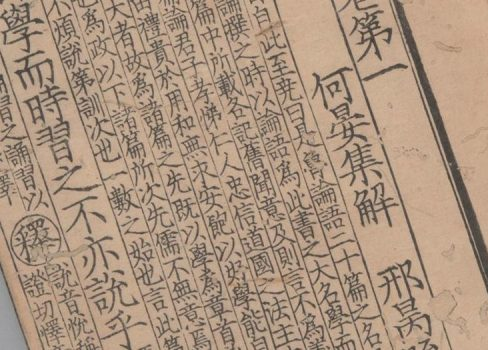 第一
何晏集解 邢昺
曰此至堯曰是魯論語二十篇之名
論撰之時以論語為此書之大名學而
篇中所載各記舊聞意及則言不為義
論君子孝悌仁人忠信道國之法主
由禮貴於用和無求安飽以好學能自
大者故為諸篇之先既以學為章首
也為政以下諸篇所次先儒不無意焉
不煩說第訓次也一數之始也言此篇
學而時習之不亦說乎
習之誦習以 釋 說音悅稱
證切懌